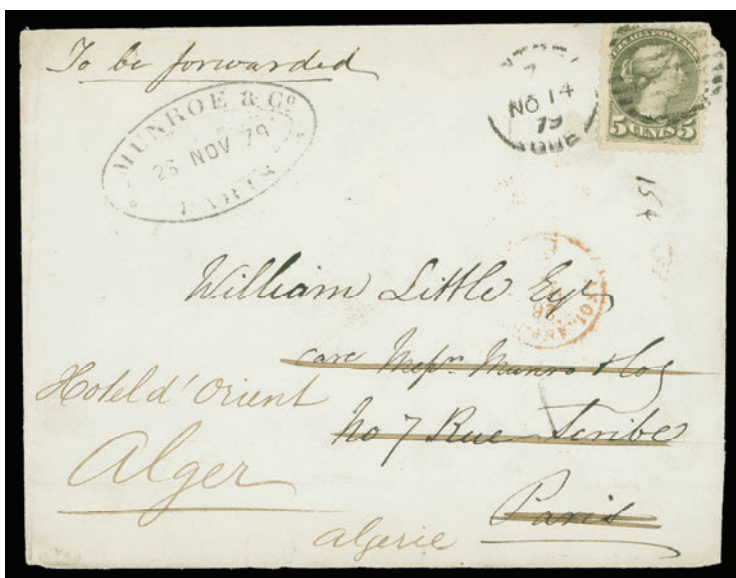 To be forwarded
MUNROE & Co
26 NOV 79
PARIS
NO 14
79
QUE
CANADA POSTAGE
5 CENTS 5
William Little Esqr
care Messrs. Munro & Co
No 7 Rue Scribe
Paris
Hotel d'Orient
Alger
Algerie